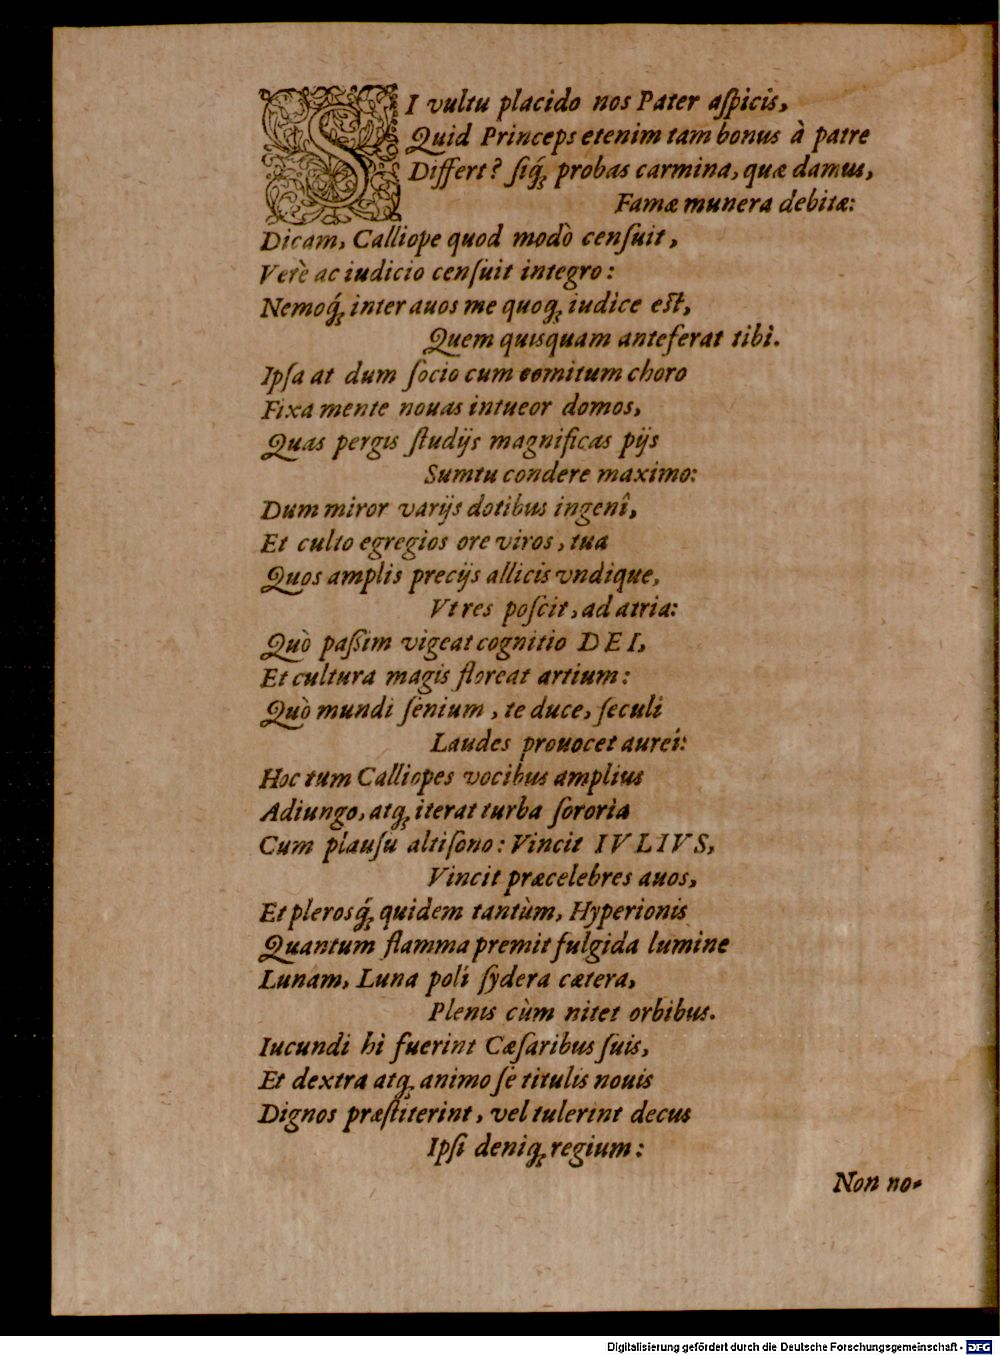 SI vultu placido nos Pater aſpicis,
Quid Princeps etenim tam bonus à patre
Differt? ſiq́ꝫ probas carmina, quæ damus,
Famæ munera debitæ:
Dicam, Calliope quod modò cenſuit,
Verè ac iudicio cenſuit integro:
Nemoq́ꝫ inter auos me quoqꝫ iudice eſt,
Quem quisquam anteferat tibi.
Ipſa at dum ſocio cum comitum choro
Fixa mente nouas intueor domos,
Quas pergis ſtudijs magnificas pijs
Sumtu condere maximo:
Dum miror varijs dotibus ingenî,
Et culto egregios ore viros, tua
Quos amplis precijs allicis vndique,
Vt res poſcit, ad atria:
Quò paſſim vigeat cognitio DEI,
Et cultura magis floreat artium:
Quò mundi ſenium, te duce, ſeculi
Laudes prouocet aurei:
Hoc tum Calliopes vocibus amplius
Adiungo, atqꝫ iterat turba ſororia
Cum plauſu altiſono: Vincit IVLIVS,
Vincit præcelebres auos,
Et plerosq́ꝫ quidem tantùm, Hyperionis
Quantum flamma premit fulgida lumine
Lunam, Luna poli ſydera cætera,
Plenis cùm nitet orbibus.
Iucundi hi fuerint Cæſaribus ſuis,
Et dextra atqꝫ animo ſe titulis nouis
Dignos præſtiterint, vel tulerint decus
Ipſi deniqꝫ regium:
Non no-
Digitalisierung gefördert durch die Deutsche Forschungsgemeinschaft - DFG